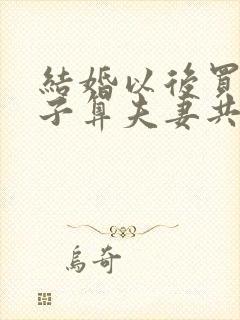 結婚以後買
子算夫妻共
烏奇